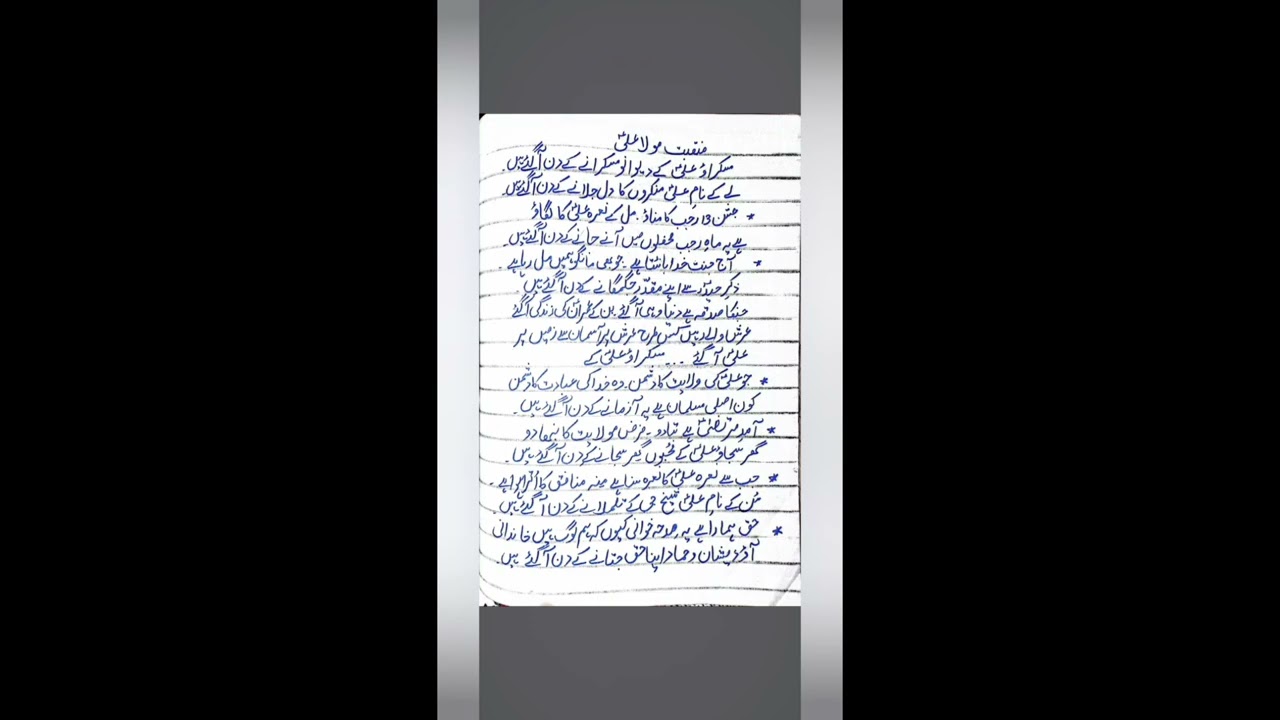 منقبت مولا علیؑ
مسکراؤ علیؑ کے دیوانو مسکرانے کے دن آگئے ہیں۔
لے کے نام علیؑ منکروں کا دل جلانے کے دن آگئے ہیں۔
* جشن 13 رجب کا مناؤ۔ مل کے نعرہ علیؑ کا لگاؤ
ہے یہ ماہِ رجب محفلوں میں آنے جانے کے دن آگئے ہیں۔
* آج جنت خدا بانٹتا ہے۔ جو بھی مانگو ہمیں مل رہا ہے۔
ذکرِ حیدرؑ سے اپنے مقدّر جگمگانے کے دن آگئے ہیں۔
جنکا صدقہ ہے دنیا وہی آگئے۔ بن کے عمرانؑ کی زندگی آگئے
عرش والے رہیں کس طرح عرش پر آسمان سے زمیں پر
علیؑ آ گئے ۔۔۔ مسکراؤ علیؑ کے
* جو علیؑ کی ولایت کا دشمن۔ وہ خدا کی عبادت کا دشمن
کون اصلی مسلماں ہے یہ آزمانے کے دن آگئے ہیں۔
* آمدِ مرتضیٰؑ ہے بتا دو۔ فرض مولا یت کا نبھا دو
گھر سجاؤ علیؑ کے محبّوں گھر سجانے کے دن آگئے ہیں۔
* جب سے نعرہ علیؑ کا نعرہ سنا ہے منہ منافق کا اُترا ہوا ہے۔
سُن کے نامِ علیؑ شیخ جی کے تلملانے کے دن آگئے ہیں
* حق ہمارا ہے یہ مدحہ خوانی کیوں کہ ہم لوگ ہیں خاندانی
آؤ ذیشان و حماد اپنا حق جتانے کے دن آگئے ہیں۔